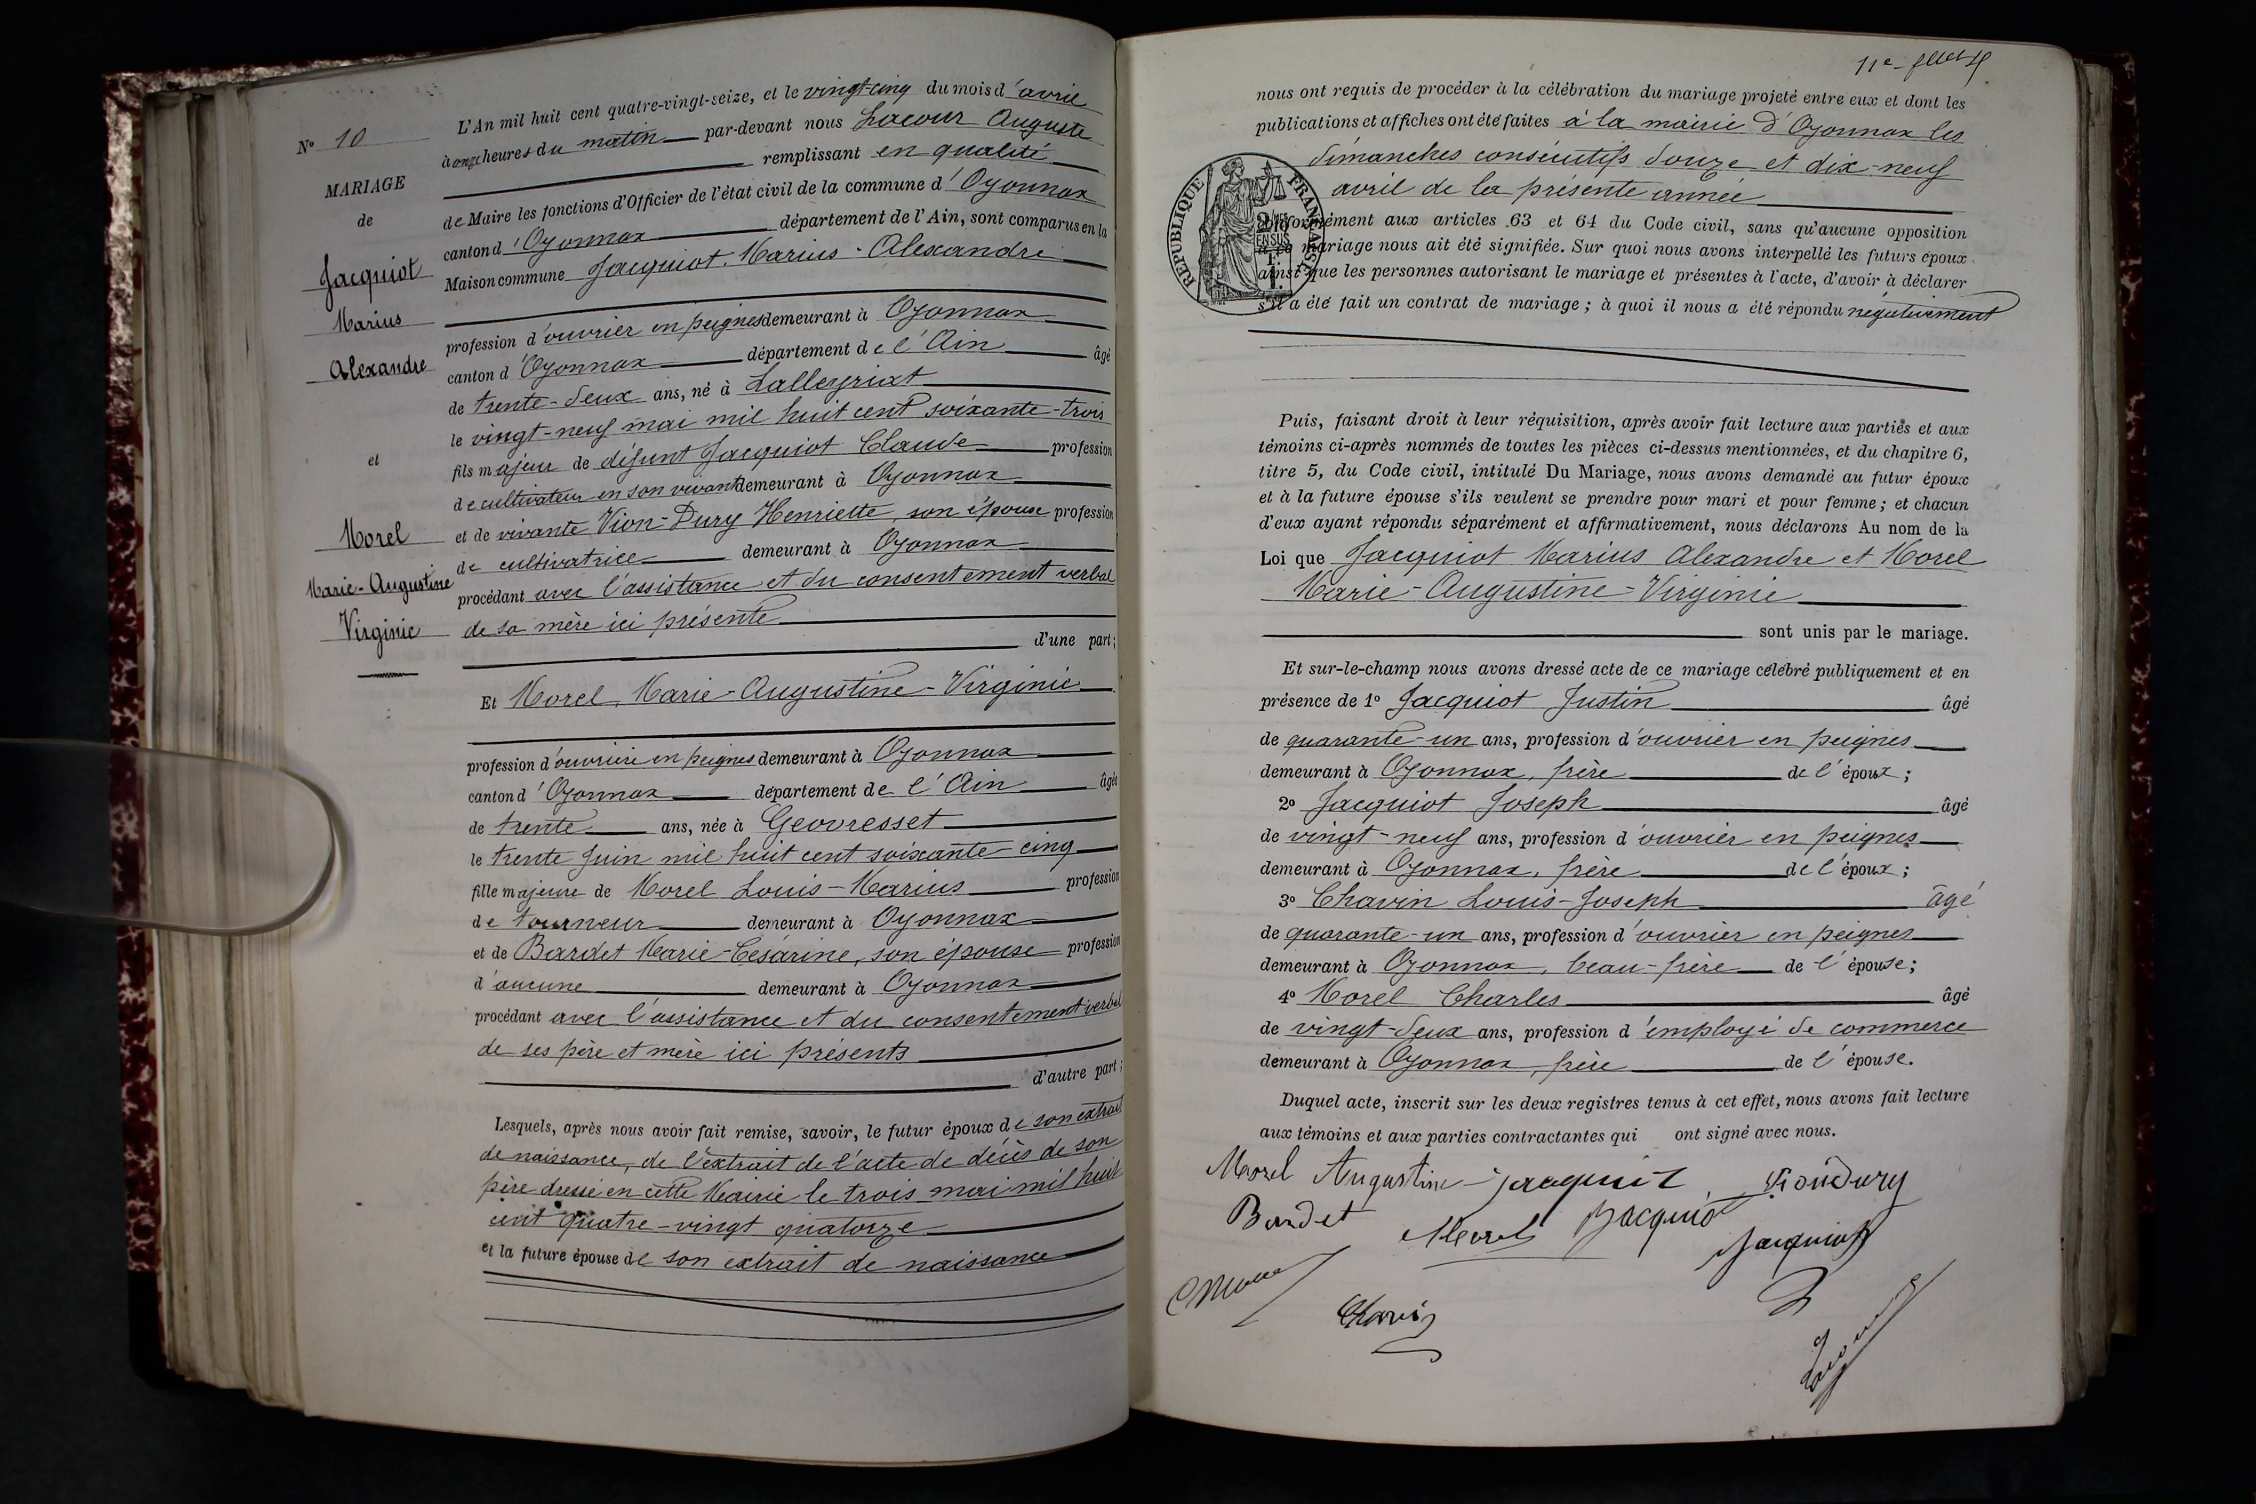 N° 10
MARIAGE
de
Jacquiot
Marius
Alexandre
et
Morel
Marie-Augustine
Virginie
L'An mil huit cent quatre-vingt-seize, et le vingt-cinq du mois d'avril
à onze heures du matin par-devant nous Lacour Auguste
remplissant en qualité
de Maire les fonctions d'Officier de l'état civil de la commune d'Oyonnax
canton d'Oyonnax département de l'Ain, sont comparus en la
Maison commune Jacquiot. Marius-Alexandre
profession d'ouvrier en peignes demeurant à Oyonnax
canton d'Oyonnax département de l'Ain âgé
de trente-deux ans, né à Lalleyriat
le vingt-neuf mai mil huit cent soixante-trois
fils majeur de défunt Jacquiot Claude profession
de cultivateur en son vivant demeurant à Oyonnax
et de vivante Vion-Dury Henriette, son épouse profession
de cultivatrice demeurant à Oyonnax
procédant avec l'assistance et du consentement verbal
de sa mère ici présente
d'une part;
Et Morel, Marie-Augustine-Virginie
profession d'ouvrière en peignes demeurant à Oyonnax
canton d'Oyonnax département de l'Ain âgée
de trente ans, née à Geovresset
le trente Juin mil huit cent soixante-cinq
fille majeure de Morel Louis-Marius profession
de tourneur demeurant à Oyonnax
et de Bardet Marie-Césarine, son épouse profession
d'aucune demeurant à Oyonnax
procédant avec l'assistance et du consentement verbal
de ses père et mère ici présents
d'autre part;
Lesquels, après nous avoir fait remise, savoir, le futur époux de son extrait
de naissance, de l'extrait de l'acte de décès de son
père dressé en cette Mairie le trois mai mil huit
cent quatre-vingt quatorze
et la future épouse de son extrait de naissance
11e
nous ont requis de procéder à la célébration du mariage projeté entre eux et dont les
publications et affiches ont été faites à la mairie d'Oyonnax les
dimanches consécutifs douze et dix-neuf
avril de la présente année
conformément aux articles 63 et 64 du Code civil, sans qu'aucune opposition
à ce mariage nous ait été signifiée. Sur quoi nous avons interpellé les futurs époux
ainsi que les personnes autorisant le mariage et présentes à l'acte, d'avoir à déclarer
s'il a été fait un contrat de mariage; à quoi il nous a été répondu négativement
RÉPUBLIQUE FRANÇAISE
Puis, faisant droit à leur réquisition, après avoir fait lecture aux parties et aux
témoins ci-après nommés de toutes les pièces ci-dessus mentionnées, et du chapitre 6,
titre 5, du Code civil, intitulé Du Mariage, nous avons demandé au futur époux
et à la future épouse s'ils veulent se prendre pour mari et pour femme; et chacun
d'eux ayant répondu séparément et affirmativement, nous déclarons Au nom de la
Loi que Jacquiot Marius Alexandre et Morel
Marie-Augustine-Virginie
sont unis par le mariage.
Et sur-le-champ nous avons dressé acte de ce mariage célébré publiquement et en
présence de 1° Jacquiot Justin âgé
de quarante-un ans, profession d'ouvrier en peignes
demeurant à Oyonnax, frère de l'époux;
2° Jacquiot Joseph âgé
de vingt-neuf ans, profession d'ouvrier en peignes
demeurant à Oyonnax, frère de l'époux;
3° Chavin Louis-Joseph âgé
de quarante-un ans, profession d'ouvrier en peignes
demeurant à Oyonnax, beau-frère de l'épouse;
4° Morel Charles âgé
de vingt-deux ans, profession d'employé de commerce
demeurant à Oyonnax, frère de l'épouse.
Duquel acte, inscrit sur les deux registres tenus à cet effet, nous avons fait lecture
aux témoins et aux parties contractantes qui ont signé avec nous.
Morel Augustine Jacquiot Viondury
Bardet Morel Jacquiot
Jacquiot
Chavin